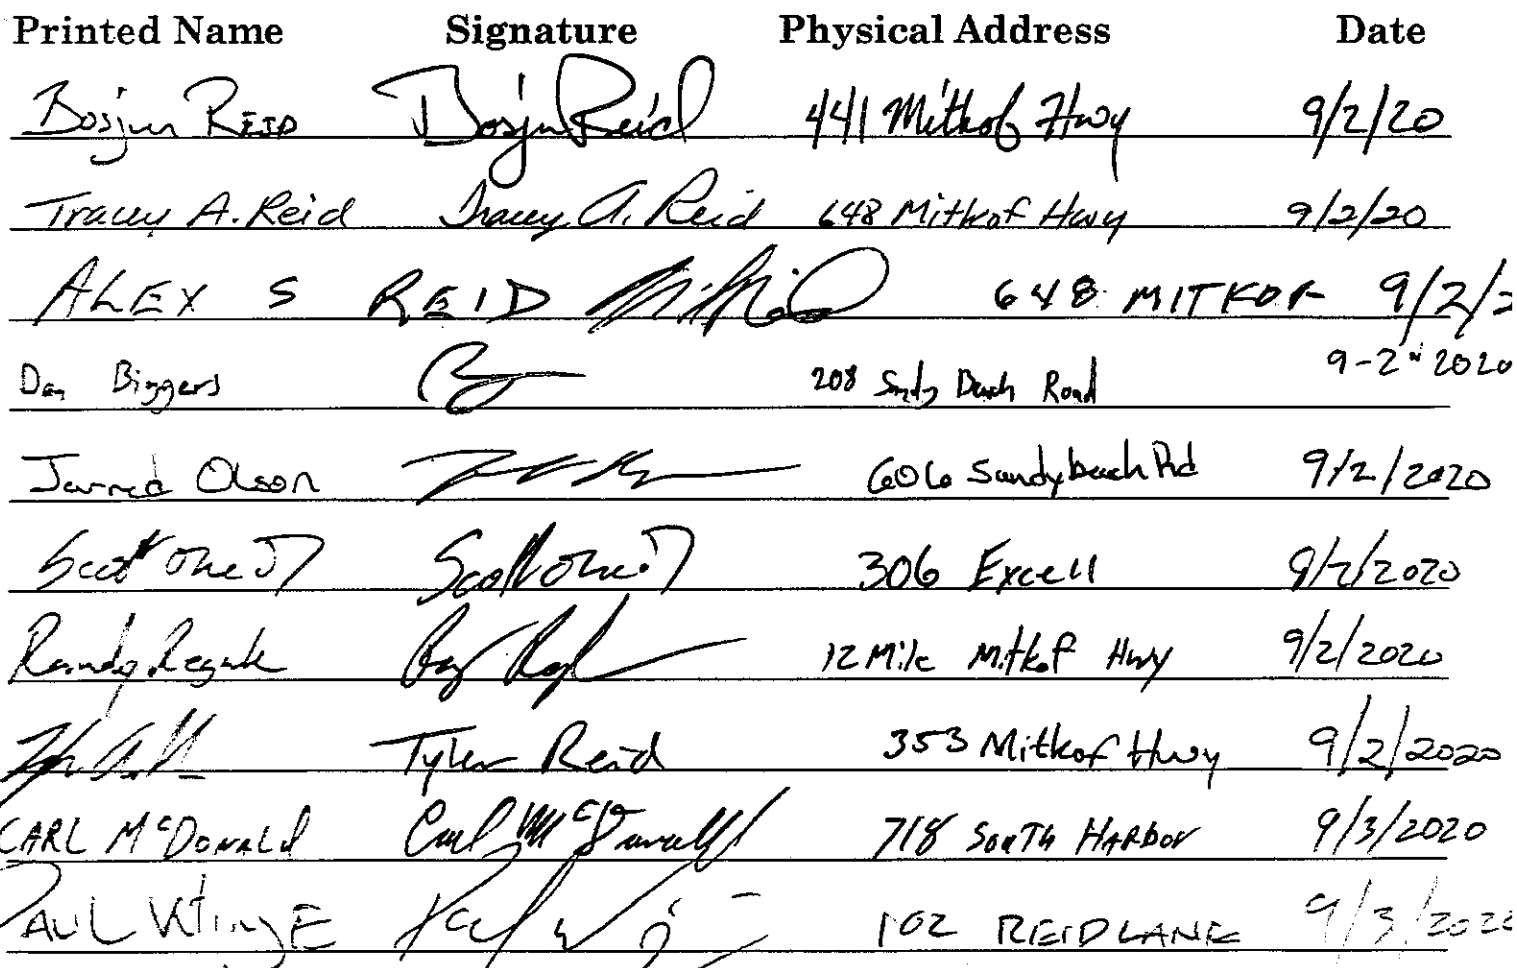 Printed Name Signature Physical Address Date
Bosjun REID Bosjun Reid 441 Mitkof Hwy 9/2/20
Tracey A. Reid Tracey A. Reid 648 Mitkof Hwy 9/2/20
ALEX S REID 648 MITKOF 9/2/2
Dan Biggers 208 Sandy Beach Road 9-2-2020
Jarred Olson 606 Sandybeach Rd 9/2/2020
Scott 306 Excell 9/2/2020
Randy 12 Mile Mitkof Hwy 9/2/2020
Tyler Reid 353 Mitkof Hwy 9/2/2020
CARL McDONALd Carl McDonald 718 South HARBOR 9/3/2020
PAUL 102 REID LANE 9/3/2020